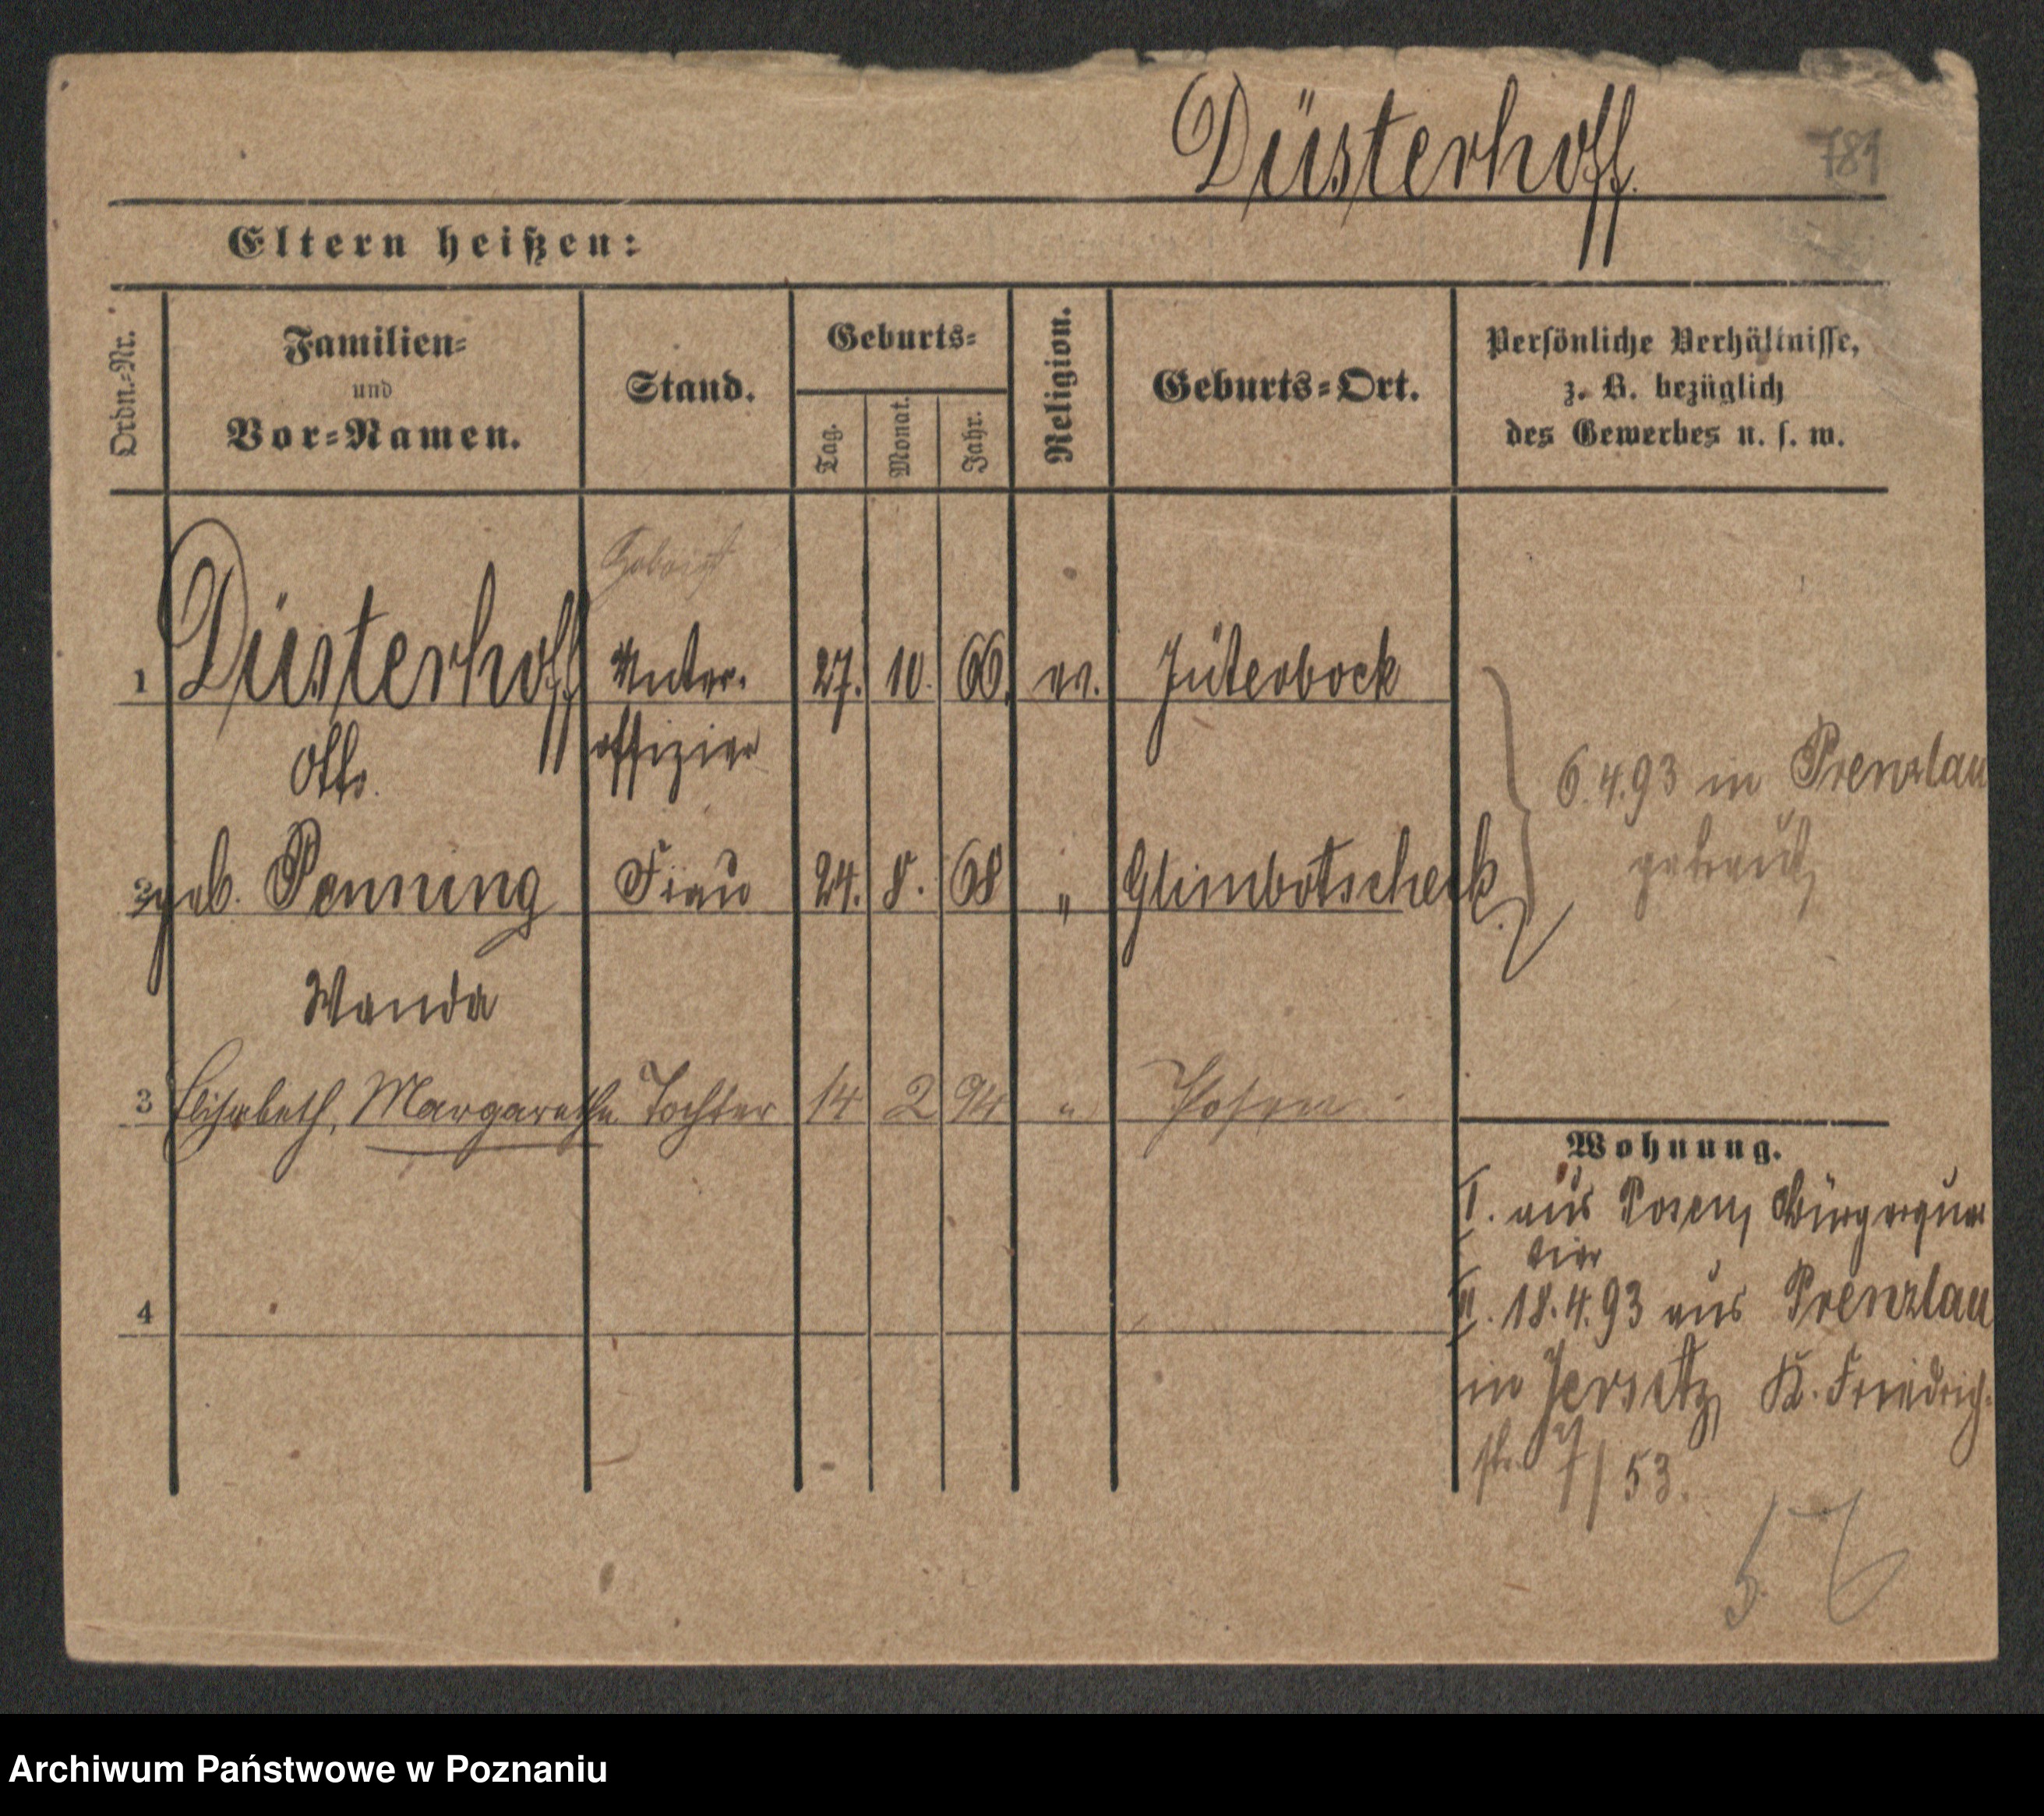 Düsterhoff.
781
Eltern heißen:
Ordn.-Nr.
Familien-
und
Vor-Namen.
Stand.
Geburts-
Tag.
Monat.
Jahr.
Religion.
Geburts-Ort.
Persönliche Verhältnisse,
z. B. bezüglich
des Gewerbes u. s. w.
Hoboist
1 Düsterhoff Unter- 27. 10. 66. ev. Jüterbock
Otto. offizier
6.4.93 in Prenzlau
getraut
2 geb. Penning Frau 24. 8. 68 " Glimbotscheck
Wanda
3 Elisabeth, Margarethe Tochter 14 2 94 " Posen
4
Wohnung.
I. aus Posen, Bürgerquar
tier
II. 18.4.93 aus Prenzlau
in Jersitz, K. Friedrich-
str. 7/53.
Archiwum Państwowe w Poznaniu